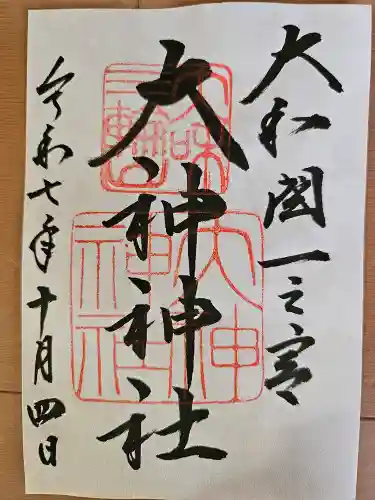 大和国一之宮
大神神社
令和七年十月四日
三輪山
大神神社